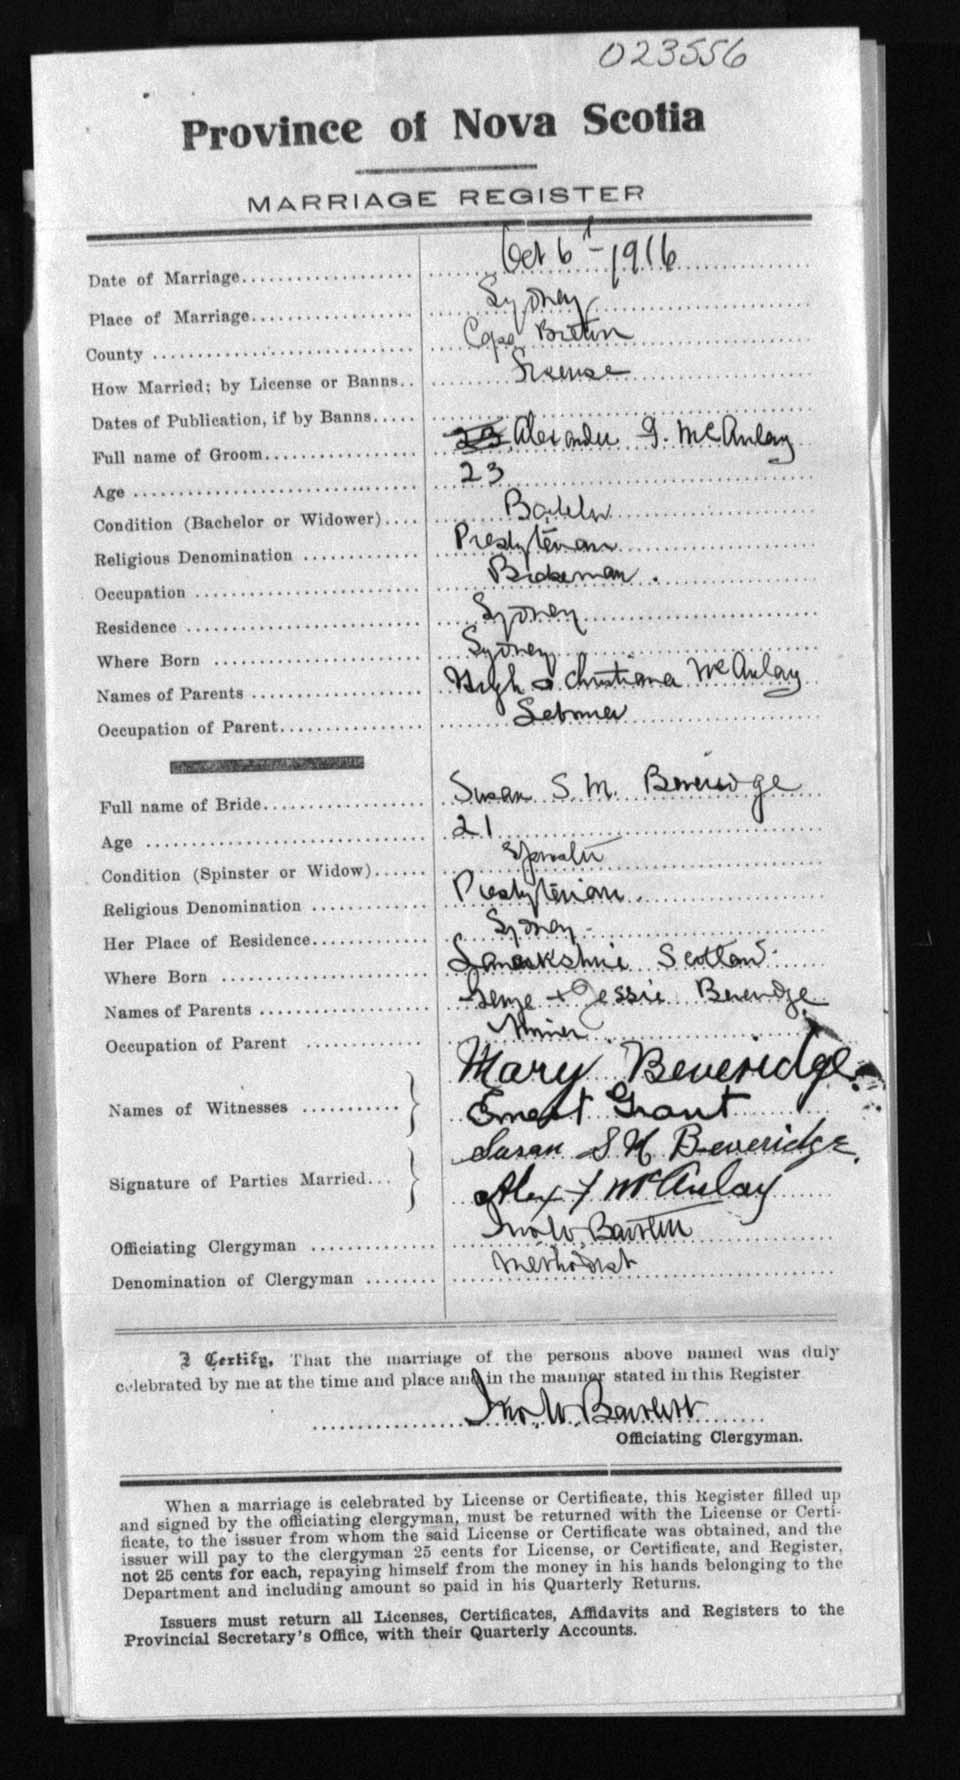 023556
Province of Nova Scotia
MARRIAGE REGISTER
Date of Marriage Oct 6th - 1916
Place of Marriage Sydney
County Cape Breton
How Married; by License or Banns License
Dates of Publication, if by Banns
Full name of Groom 23 Alexander F. McAulay
Age 23
Condition (Bachelor or Widower) Bachelor
Religious Denomination Presbyterian
Occupation Brakeman.
Residence Sydney
Where Born Sydney
Names of Parents Hugh & Christiana McAulay
Occupation of Parent Laborer
Full name of Bride Susan S. M. Beveridge
Age 21
Condition (Spinster or Widow) Spinster
Religious Denomination Presbyterian.
Her Place of Residence Sydney
Where Born Lanarkshire Scotland
Names of Parents George + Jessie Beveridge
Occupation of Parent Miner
Names of Witnesses Mary Beveridge.
Ernest Grant
Signature of Parties Married Susan S. M Beveridge.
Alex F McAulay
Officiating Clergyman Jno. W. Bartlett
Denomination of Clergyman Methodist
I Certify, That the marriage of the persons above named was duly
celebrated by me at the time and place and in the manner stated in this Register
Jno. W. Bartlett
Officiating Clergyman.
When a marriage is celebrated by License or Certificate, this Register filled up
and signed by the officiating clergyman, must be returned with the License or Certi-
ficate, to the issuer from whom the said License or Certificate was obtained, and the
issuer will pay to the clergyman 25 cents for License, or Certificate, and Register,
not 25 cents for each, repaying himself from the money in his hands belonging to the
Department and including amount so paid in his Quarterly Returns.
Issuers must return all Licenses, Certificates, Affidavits and Registers to the
Provincial Secretary's Office, with their Quarterly Accounts.